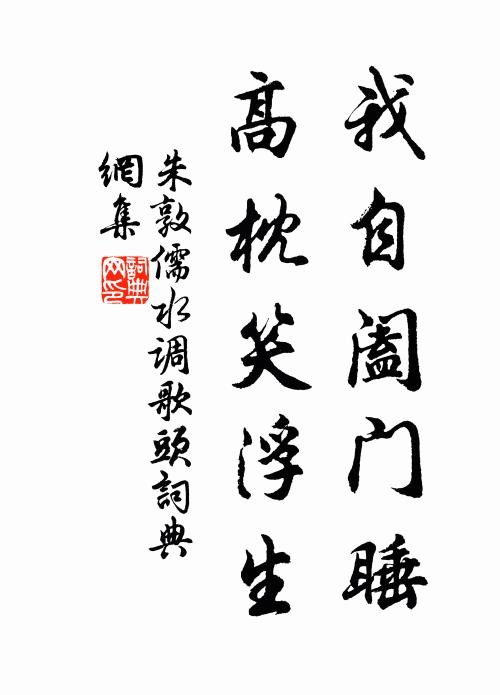 我自阖门睡
高枕笑浮生
朱敦儒水调歌頭詞典
網集
詞典
网印